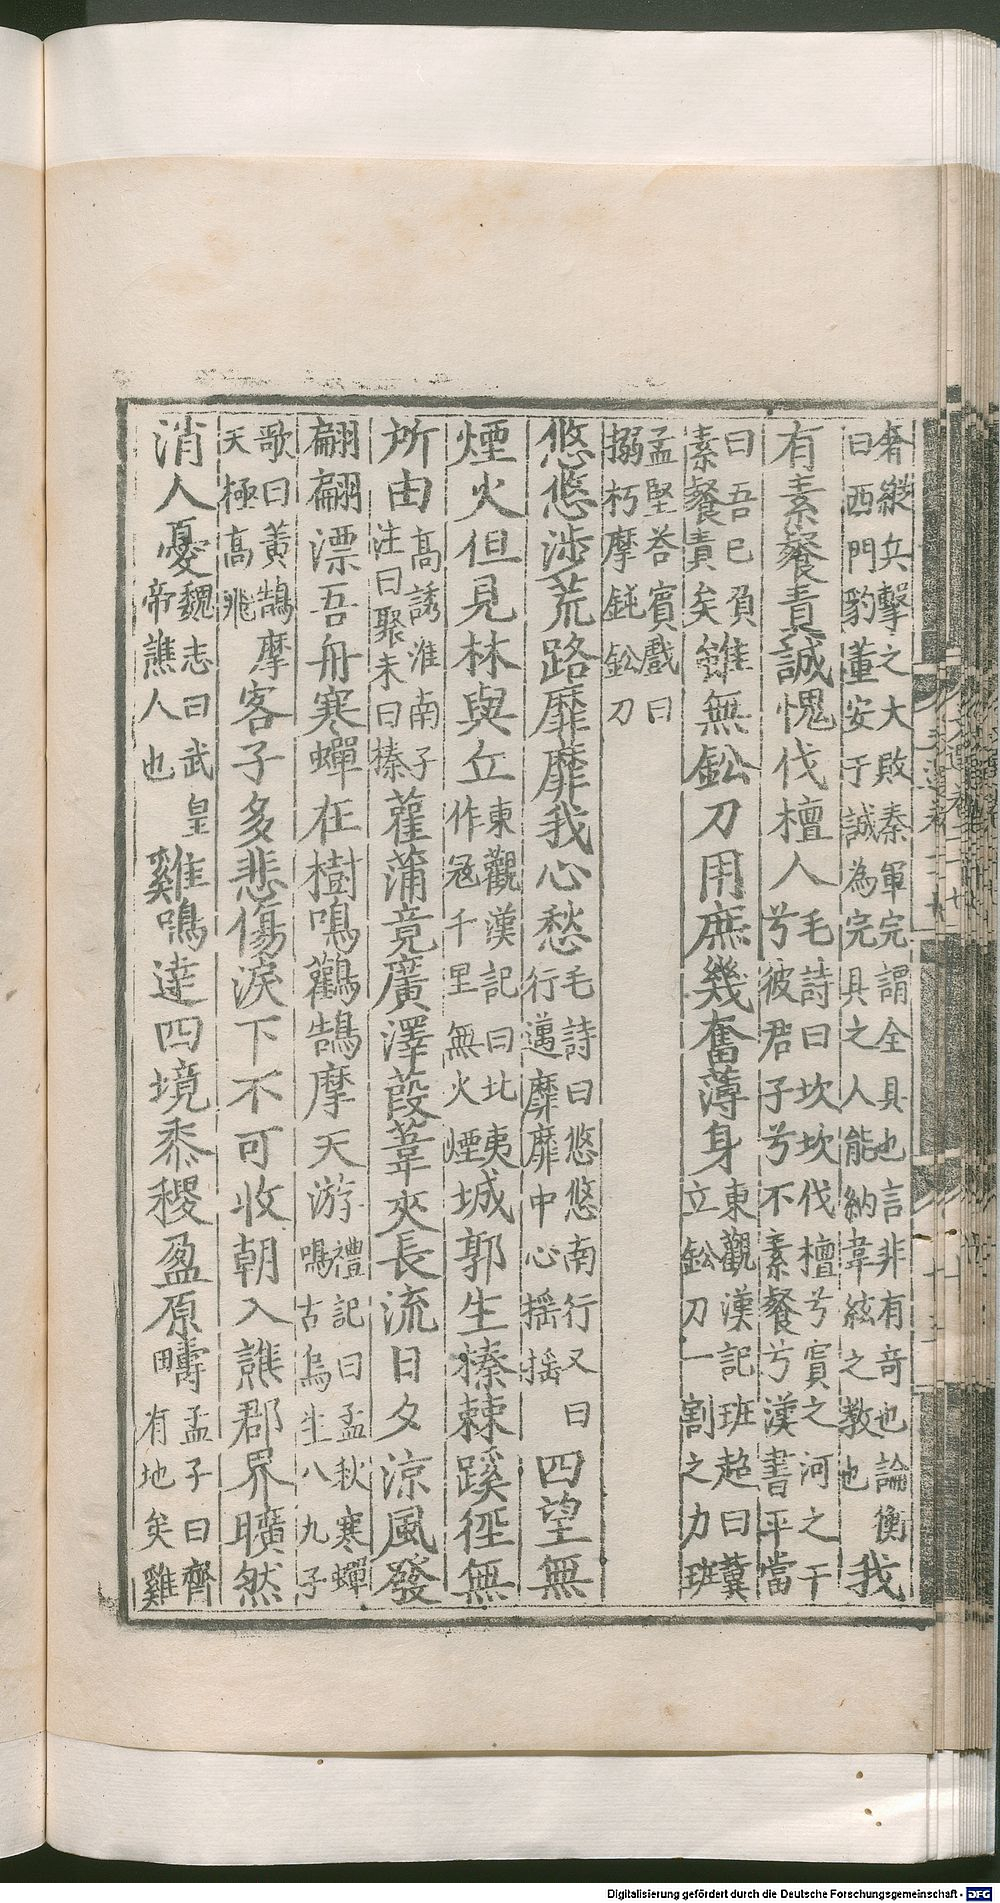 奢縱兵擊之大敗秦軍完謂全具也言非有竒也論衡
曰西門豹董安于誠為完具之人能納韋絃之教也
我
有素餐責誠愧伐檀人
毛詩曰坎坎伐檀兮寘之河之干
兮彼君子兮不素餐兮漢書平當
曰吾已負
素餐責矣
雖無鈆刀用庶幾奮薄身
東觀漢記班超曰冀
立鈆刀一割之力班
孟堅荅賔戲曰
搦朽摩鈍鈆刀
悠悠涉荒路靡靡我心愁
毛詩曰悠悠南行又曰
行邁靡靡中心揺揺
四望無
煙火但見林與丘
東觀漢記曰北夷
作冦千里無火煙
城郭生榛棘蹊徑無
所由
髙誘淮南子
注曰聚未曰榛
雚蒲竟廣澤葭葦夾長流日夕涼風發
翩翩漂吾舟寒蟬在樹鳴鸛鵠摩天游
禮記曰孟秋寒蟬
鳴古烏生八九子
歌曰黃鵠摩
天極髙飛
客子多悲傷淚下不可收朝入譙郡界曠然
消人憂
魏志曰武皇
帝譙人也
雞鳴達四境黍稷盈原疇
孟子曰齊
有地矣雞
Digitalisierung gefördert durch die Deutsche Forschungsgemeinschaft - DFG